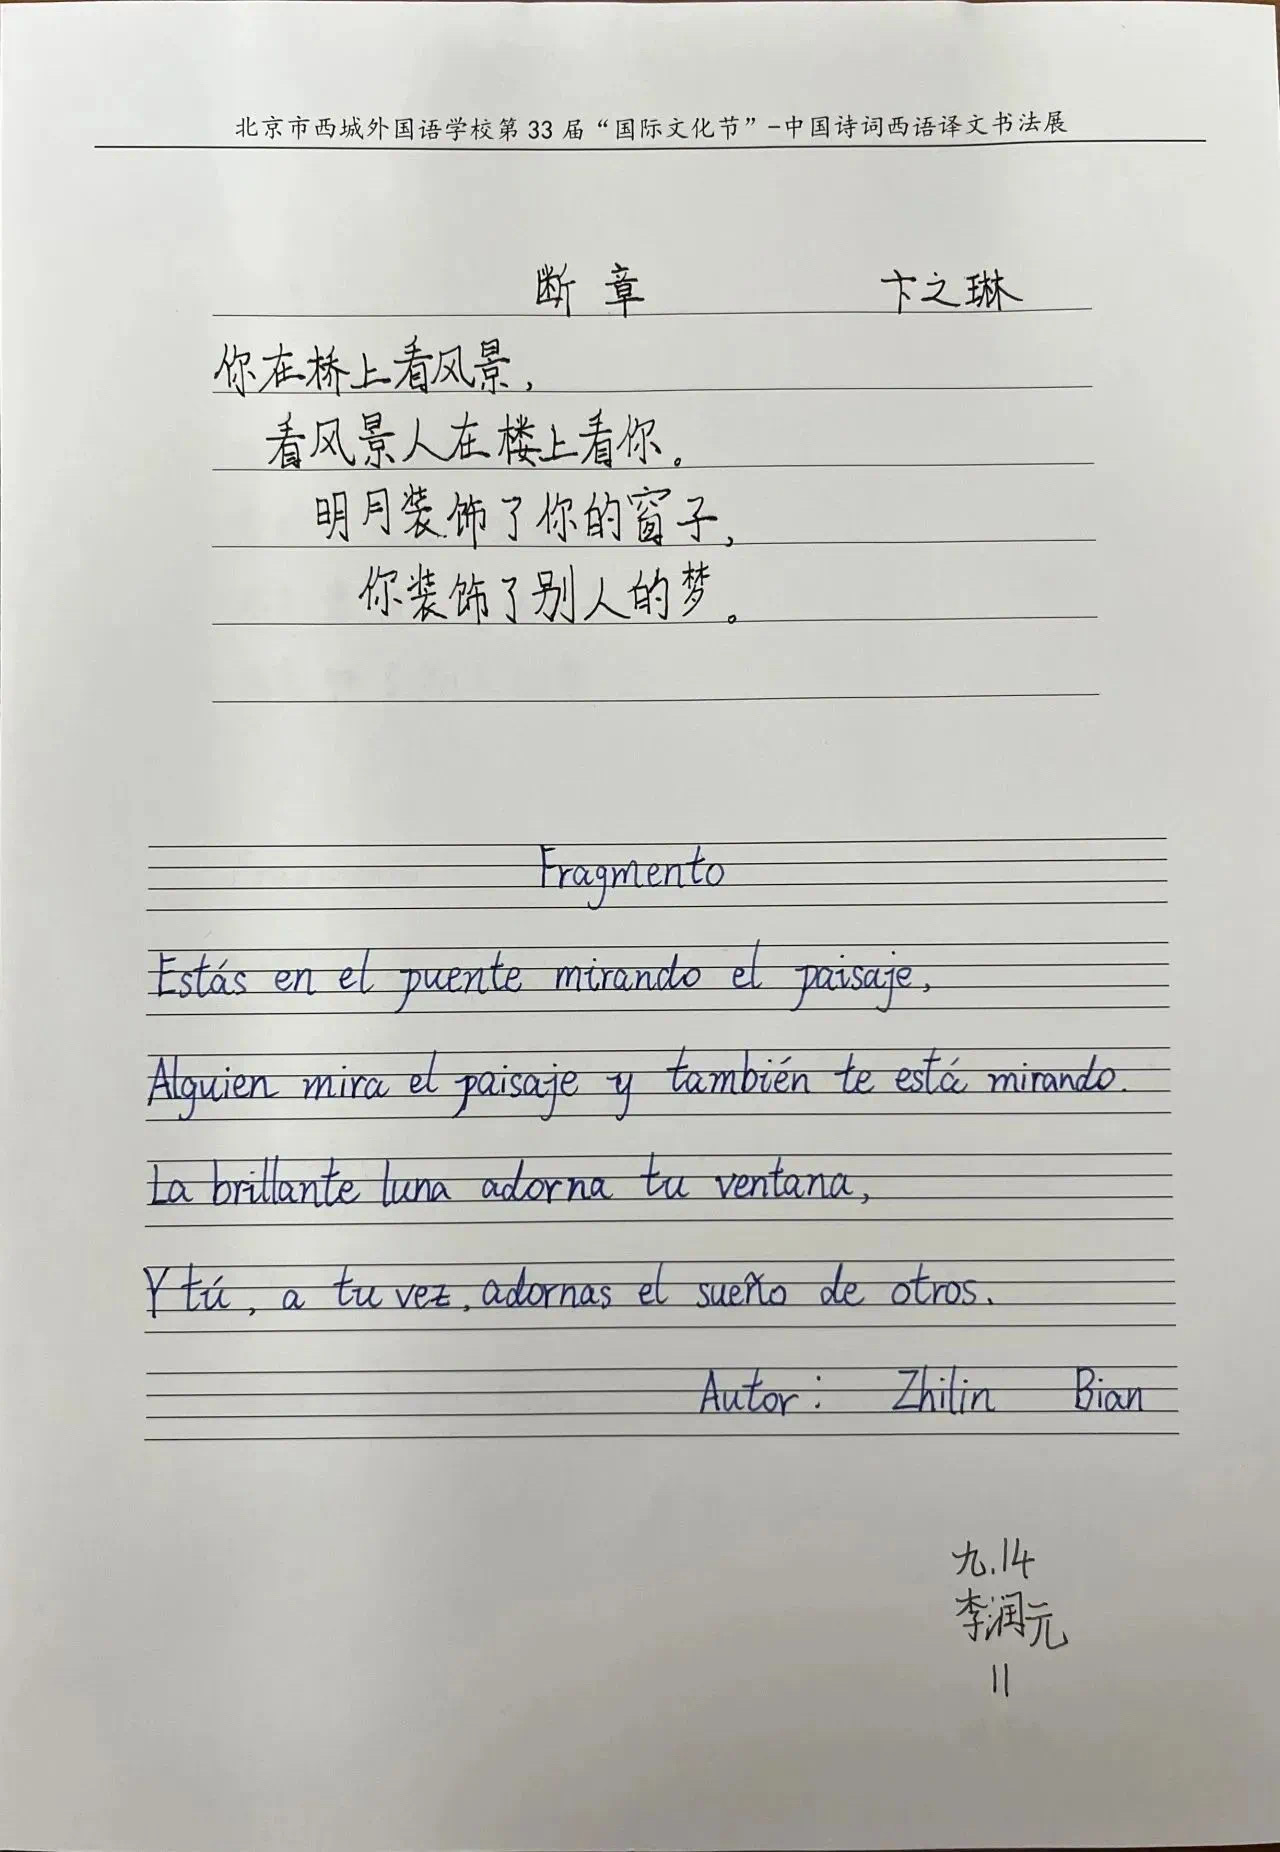 北京市西城外国语学校第 33 届“国际文化节”-中国诗词西语译文书法展
断章 卞之琳
你在桥上看风景，
看风景人在楼上看你。
明月装饰了你的窗子，
你装饰了别人的梦。
Fragmento
Estás en el puente mirando el paisaje,
Alguien mira el paisaje y también te está mirando.
La brillante luna adorna tu ventana,
Y tú, a tu vez, adornas el sueño de otros.
Autor: Zhilin Bian
九.14
李润元
11